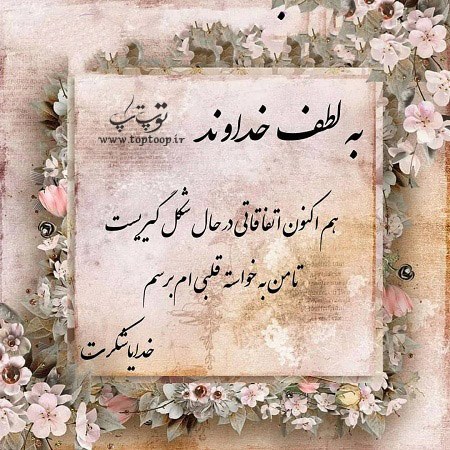 به لطف خداوند
توپ تاپ
www.toptoop.ir
هم اکنون اتفاقاتی در حال شکل گیریست
تا من به خواسته قلبی ام برسم
خدایا شکرت